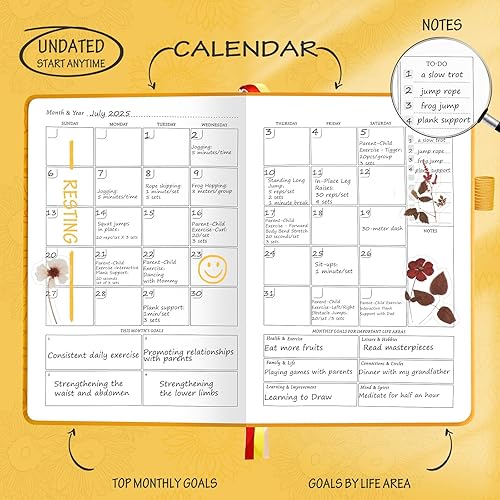 UNDATED
START ANYTIME
CALENDAR
NOTES
TO-DO
1 a slow trot
2 jump rope
3 frog jump
4 plank support
Month & Year July 2025
SUNDAY MONDAY TUESDAY WEDNESDAY
THURSDAY FRIDAY SATURDAY
1
2
Jogging:
5 minutes/time
3
4
5
Parent-Child
Exercise - Tigger:
20pcs/group
3 sets
jump rope
frog jump
plank support
RESTING
6
7
Jogging:
5 minutes/time
8
Rope skipping:
1 minute/set
5 sets
9
Frog Hopping:
8 meters/group
10
Standing Long
Jump:
5 reps/set
2 sets
1 minute break
11
In-Place Leg
Raises:
30 reps/set
4 sets
12
13
14
Squat jumps
in place:
20 reps/set x 3 sets
15
16
Parent-Child
Exercise-Curl:
20/set
3 sets
17
Parent-Child
Exercise - Forward
Body Bend Stretch
20 seconds/set
3 sets
18
19
30-meter dash
20
21
Parent-Child
Exercise-Interactive
Plank Support:
20 seconds
/set of 3 sets
22
Parent-Child
Exercise:
Dancing
with Mommy
23
24
25
Sit-ups:
1 set
26
NOTES
27
28
29
Plank support:
1min/set
3 sets
30
31
Parent-Child
Exercise-Left/Right
Obstacle Jumps
20/set /3 sets
Parent-Child
Exercise-Interactive
Plank Support with Dad
THIS MONTH'S GOALS
Consistent daily exercise
Promoting relationships
with parents
Strengthening the
waist and abdomen
Strengthening
the lower limbs
MONTHLY GOALS FOR IMPORTANT LIFE AREAS
Health & Exercise
Eat more fruits
Leisure & Hobbies
Read masterpieces
Family & Life
Playing games with parents
Connections & Circles
Dinner with my grandfather
Learning & Improvement
Learning to Draw
Mind & Spirits
Meditate for half an hour
TOP MONTHLY GOALS
GOALS BY LIFE AREA